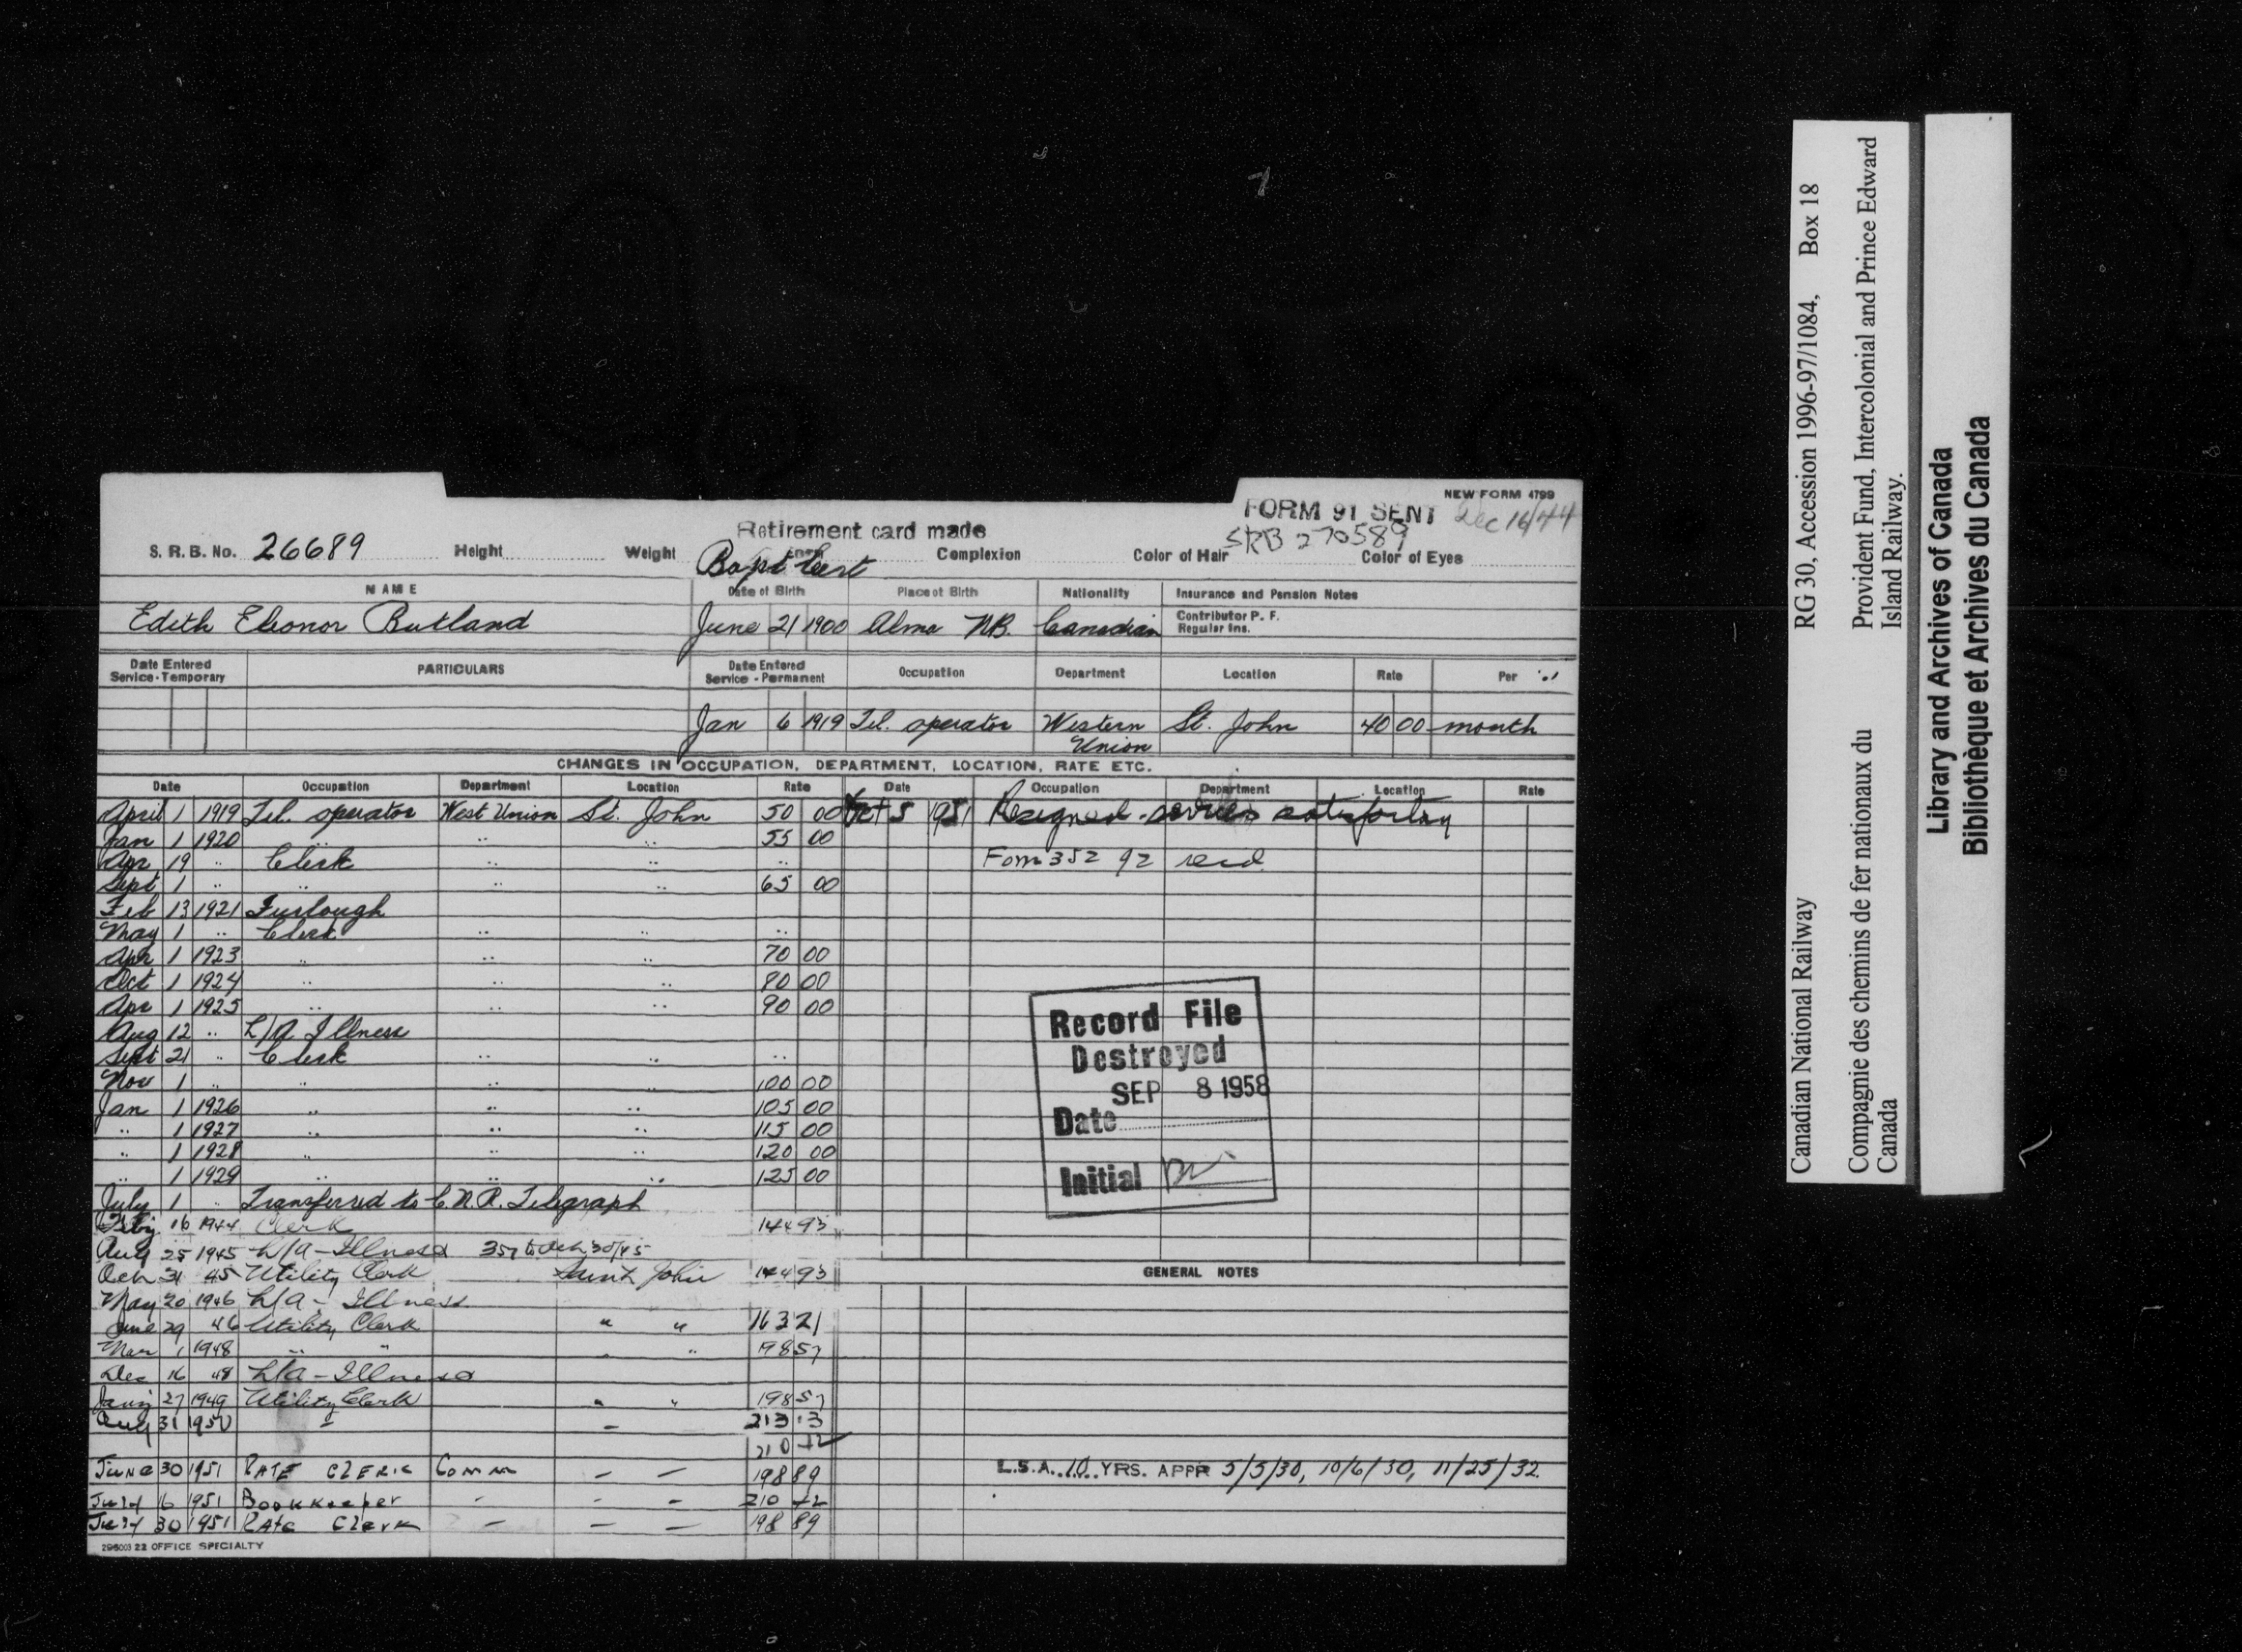 NEW FORM 4799
FORM 91 SENT Dec 16/44
Retirement card made
SRB 270589
S. R. B. No. 26689 Height Weight Complexion Color of Hair Color of Eyes
Bapt Cert
NAME Date of Birth Place of Birth Nationality Insurance and Pension Notes
Edith Eleonor Butland June 21 1900 Alma N.B. Canadian Contributor P. F.
Regular Ins.
Date Entered Service - Temporary PARTICULARS Date Entered Service - Permanent Occupation Department Location Rate Per
Jan 6 1919 Tel. operator Western Union St. John 40 00 month
CHANGES IN OCCUPATION, DEPARTMENT, LOCATION, RATE ETC.
Date Occupation Department Location Rate Date Occupation Department Location Rate
April 1 1919 Tel. operator West Union St. John 50 00 Oct 5 1951 Resigned - services satisfactory
Jan 1 1920 .. .. .. 55 00
Apr 19 .. Clerk .. .. .. Form 352 92 recd
Sept 1 .. .. .. .. 65 00
Feb 13 1921 Furlough
May 1 .. Clerk .. .. ..
Apr 1 1923 .. .. .. 70 00
Oct 1 1924 .. .. .. 80 00
Apr 1 1925 .. .. .. 90 00
Aug 12 .. L/A Illness
Sept 21 .. Clerk .. .. ..
Nov 1 .. .. .. .. 100 00
Jan 1 1926 .. .. .. 105 00
.. 1 1927 .. .. .. 115 00
.. 1 1928 .. .. .. 120 00
.. 1 1929 .. .. .. 125 00
July 1 .. Transferred to C.N.R. Telegraph
Feby 16 1944 Clerk 144 93
Aug 25 1945 L/A - Illness to Oct 30/45
Oct 31 45 Utility Clerk Saint John 144 93
May 20 1946 L/A - Illness
June 29 46 Utility Clerk " " 163 21
Mar 1 1948 " " " " 198 57
Dec 16 48 L/A - Illness
Jany 27 1949 Utility Clerk " " 198 57
Aug 31 1950 " - 213 13
210 42
June 30 1951 RATE CLERK Comm - - 198 89
July 16 1951 Bookkeeper - - - 210 42
July 30 1951 Rate Clerk - - - 198 89
295003 22 OFFICE SPECIALTY
Record File
Destroyed
SEP 8 1958
Date
Initial
GENERAL NOTES
L.S.A. 10 YRS. APPR 5/5/30, 10/6/30, 11/25/32.
Canadian National Railway RG 30, Accession 1996-97/1084, Box 18
Compagnie des chemins de fer nationaux du Canada
Provident Fund, Intercolonial and Prince Edward Island Railway.
Library and Archives of Canada
Bibliothèque et Archives du Canada